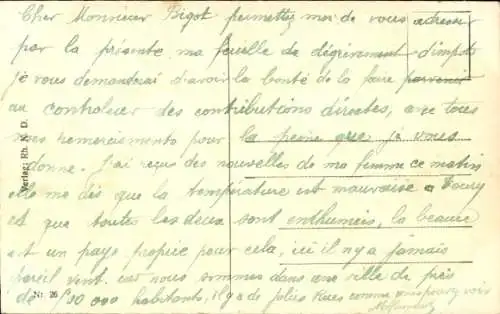 Cher Monsieur Bigot permettez moi de vous adresser
par la présente ma feuille de dégrèvement d'impots
je vous demanderai d'avoir la bonté de la faire parvenir
au controleur des contributions directes, avec tous
mes remerciements pour la peine que je vous
donne. J'ai reçus des nouvelles de ma femme ce matin
elle me dis que la température est mauvaise a
et que toutes les deux sont enthumeis, la beauce
est un pays propice pour cela, ici il n'y a jamais
pareil vent. car nous sommes dans une ville de près
de 000 habitants, il y a de jolies Rues comme vous pouvez voir
Verlag: Rh. N. D.
Nr. 26